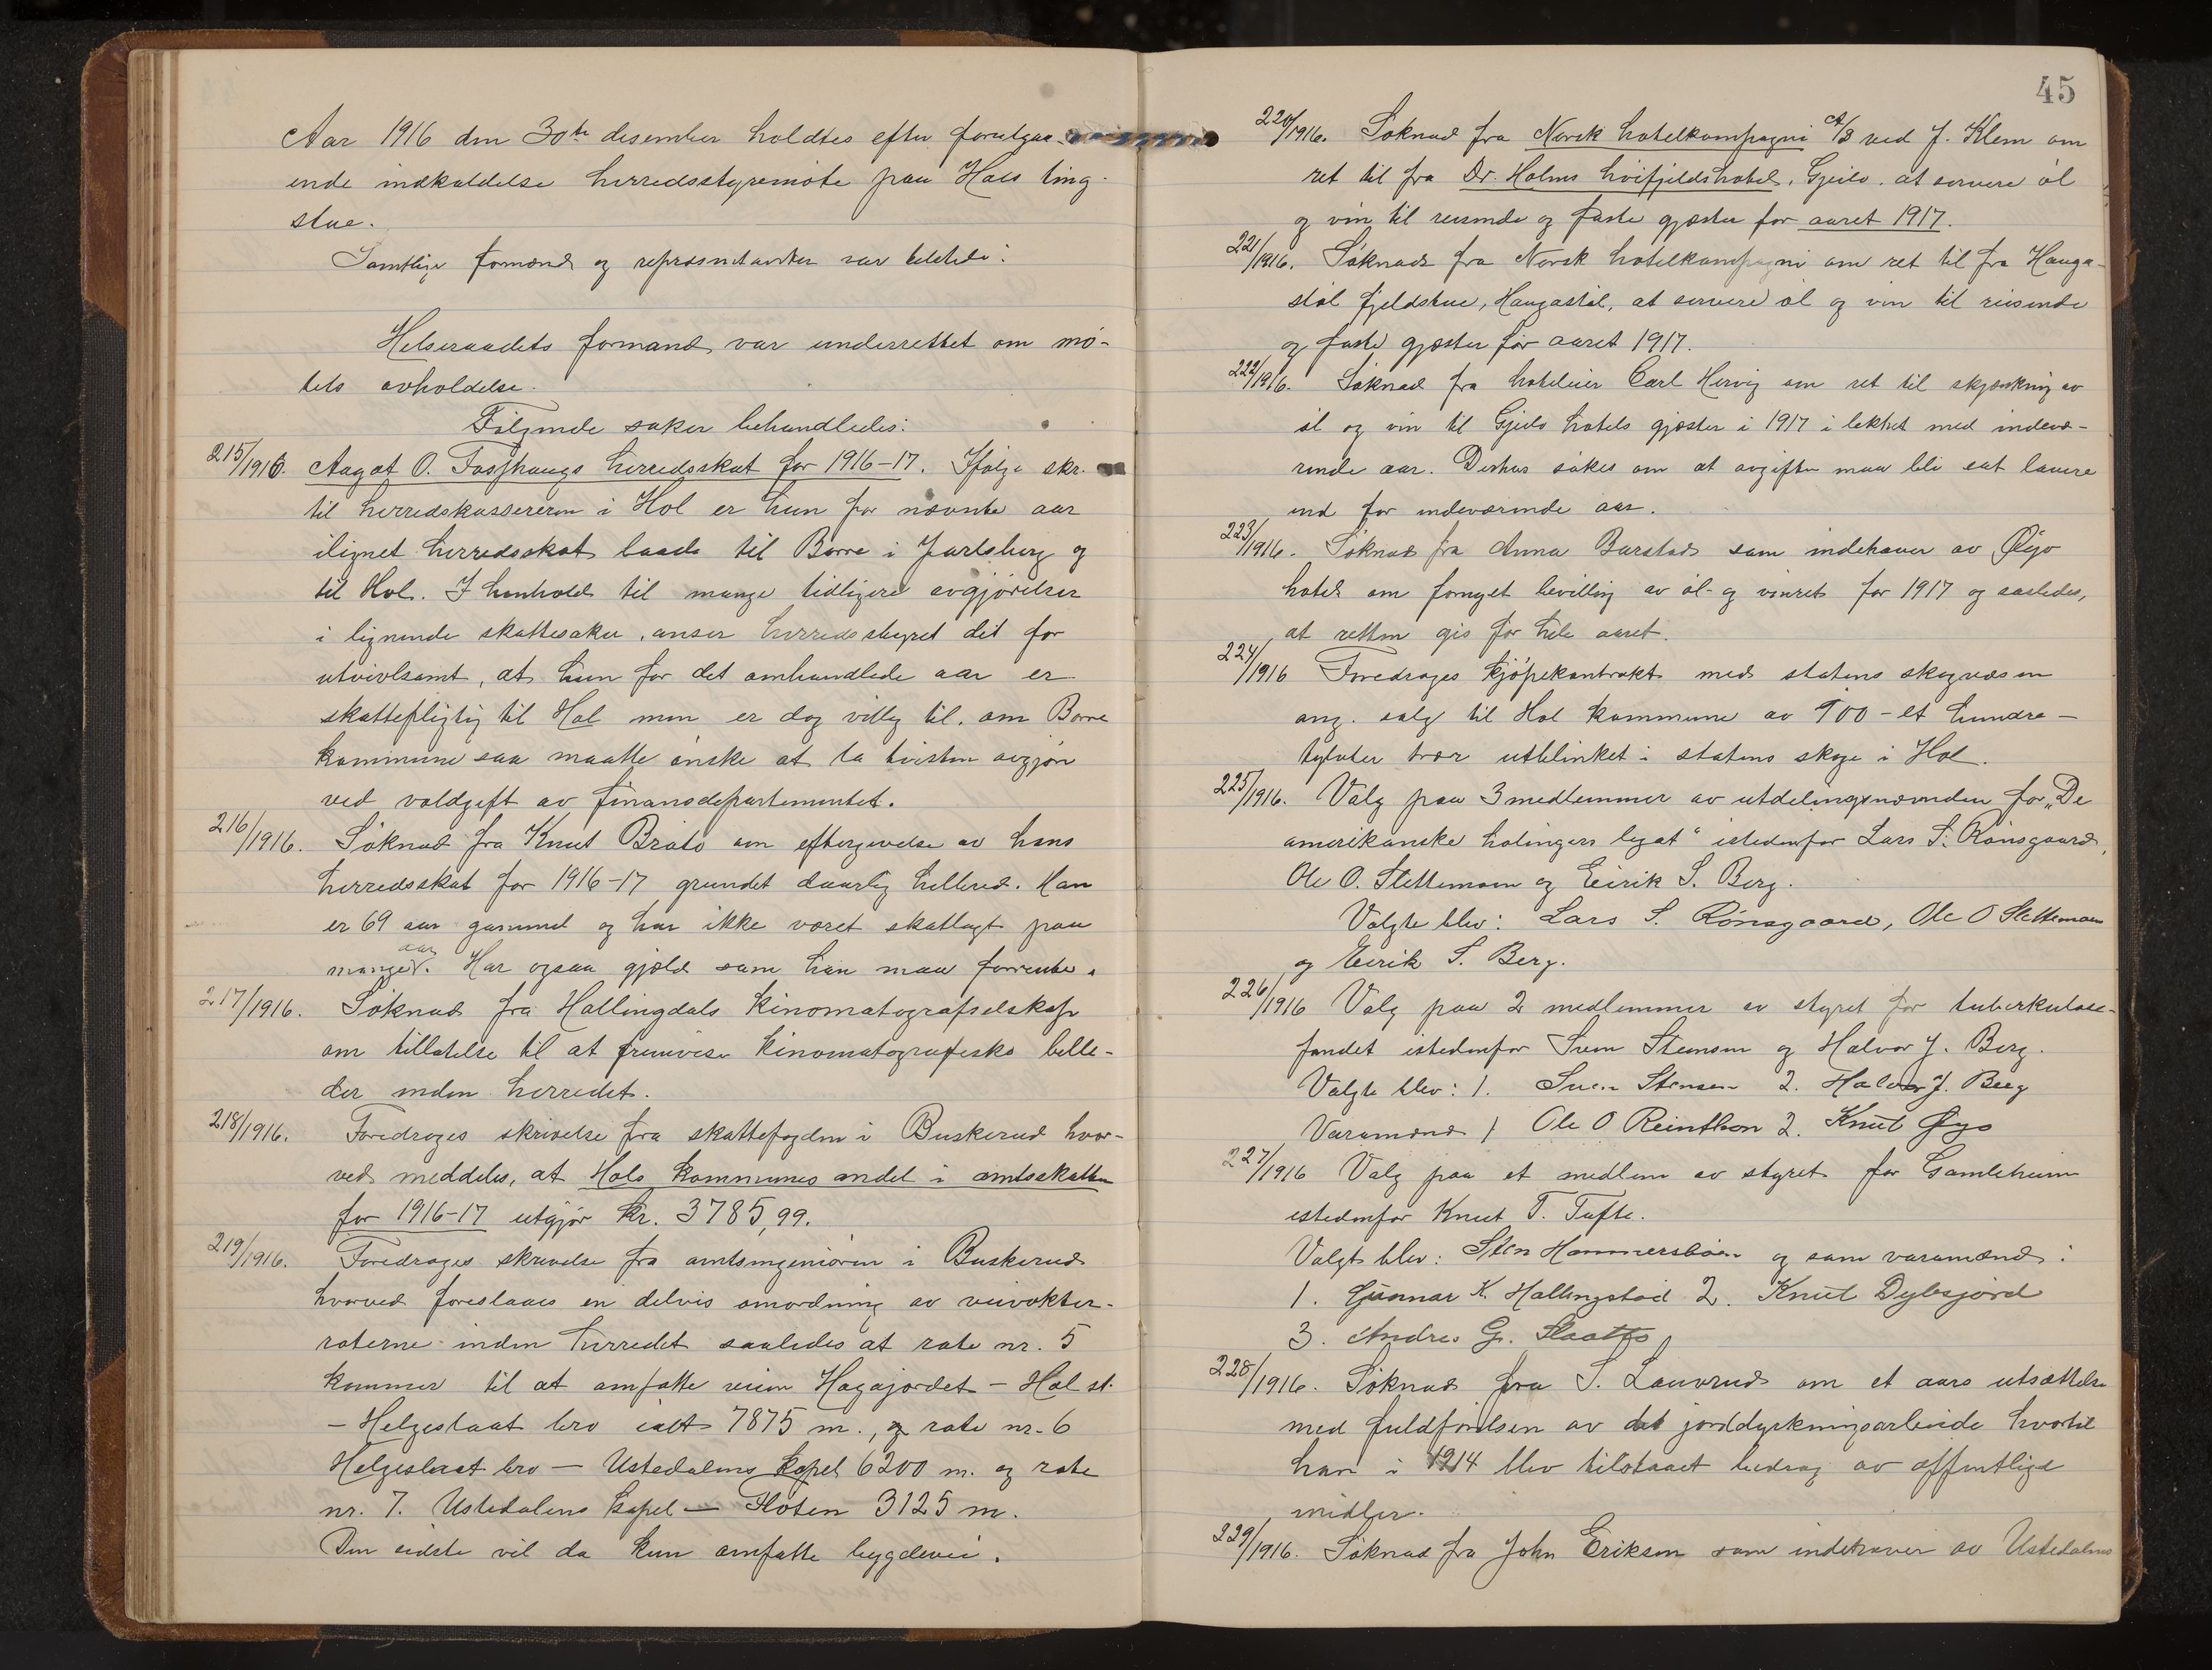 Aar 1916 den 30te desember holdtes efter forutgaa-
ende indkaldelse herredsstyremöte paa Hols ting-
stue.
Samtlige formænd og repræsentanter var tilstede:
Helseraadets formand var underrettet om mö-
tets avholdelse.
Fölgende saker behandledes:
215/1916. Aagot O. Fosshaugs herredsskat for 1916-17. Ifölge skr.
til herredskassereren i Hol er hun for nævnte aar
ilignet herredsskat baade til Borre i Jarlsberg og
til Hol. I henhold til mange tidligere avgjörelser
i lignende skattesaker, anser herredsstyret det for
utvivlsomt, at hun for det omhandlede aar er
skattepligtig til Hol men er dog villig til, om Borre
kommune saa maatte önske at ta tvisten avgjör
ved voldgift av finansdepartementet.
216/1916. Söknad fra Knut Bråtö om eftergivelse av hans
herredsskat for 1916-17 grundet daarlig helbred. Han
er 69 aar gammel og har ikke været skatlagt paa
mange aar. Har ogsaa gjæld som han maa forrente.
217/1916. Söknad fra Hallingdals kinomatografselskap
om tillatelse til at fremvise kinomatografiske bille-
der inden herredet.
218/1916. Foredroges skrivelse fra skattefogden i Buskerud hvor-
ved meddeles, at Hols kommunes andel i amtsskatten
for 1916-17 utgjör kr. 3785,99.
219/1916. Foredroges skrivelse fra amtsingeniören i Buskerud
hvorved foreslaaes en delvis omordning av veivokter-
roterne inden herredet saaledes at rote nr. 5
kommer til at omfatte veien Hagajordet - Hol st.
- Helgeslaat bro ialt 7875 m., og rote nr. 6
Helgeslaat bro - Ustedalens kapel 6200 m. og rote
nr. 7. Ustedalens kapel - Flöten 3125 m.
Den sidste vil da kun omfatte bygdevei.
45
220/1916. Söknad fra Norsk hotelkompagni A/S ved J. Klem om
ret til fra Dr. Holms höifjeldshotel, Gjeilo, at servere öl
og vin til reisende og faste gjæster for aaret 1917.
221/1916. Söknad fra Norsk hotelkompagni om ret til fra Hauga-
stöl fjeldstue, Haugastöl, at servere öl og vin til reisende
og faste gjæster for aaret 1917.
222/1916. Söknad fra hoteleier Carl Hervig om ret til skjænkning av
öl og vin til Gjeilo hotels gjæster i 1917 i likhet med indevæ-
rende aar. Desuten sökes om at avgiften maa bli sat lavere
end for indeværende aar.
223/1916. Söknad fra Anna Barstad som indehaver av Öyo
hotel om fornyet bevilling av öl- og vinret for 1917 og saaledes,
at retten gis for hele aaret.
224/1916 Foredroges kjöpekontrakt med statens skogvæsen
ang. salg til Hol kommune av 100 - et hundre -
tylvter trær utblinket i statens skoge i Hol.
225/1916. Valg paa 3 medlemmer av utdelingsnævnden for "De
amerikanske holingers legat" istedenfor Lars S. Rönsgaard,
Ole O. Slettemoen og Eirik S. Berg.
Valgte blev: Lars S. Rönsgaard, Ole O Slettemoen
og Eirik S. Berg.
226/1916 Valg paa 2 medlemmer av styret for tuberkulose-
fondet istedenfor Sven Stensen og Halvor J. Berg.
Valgte blev: 1. Sven Stensen 2. Halvor J. Berg
Varamænd 1 Ole O Reinthon 2. Knut Öyo
227/1916 Valg paa et medlem av styret for Gamleheim
istedenfor Knut T. Tufte.
Valgt blev: Sten Hammersböen og som varamænd:
1. Gunnar K. Hallingstad 2. Knut Dybsjord
3. Andres G. Slaatto
228/1916. Söknad fra S. Lauvrud om et aars utsættelse
med fuldförelsen av det jorddyrkningsarbeide hvortil
han i 1914 blev tilstaaet bidrag av offentlige
midler.
229/1916. Söknad fra John Eriksen som indehaver av Ustedalens